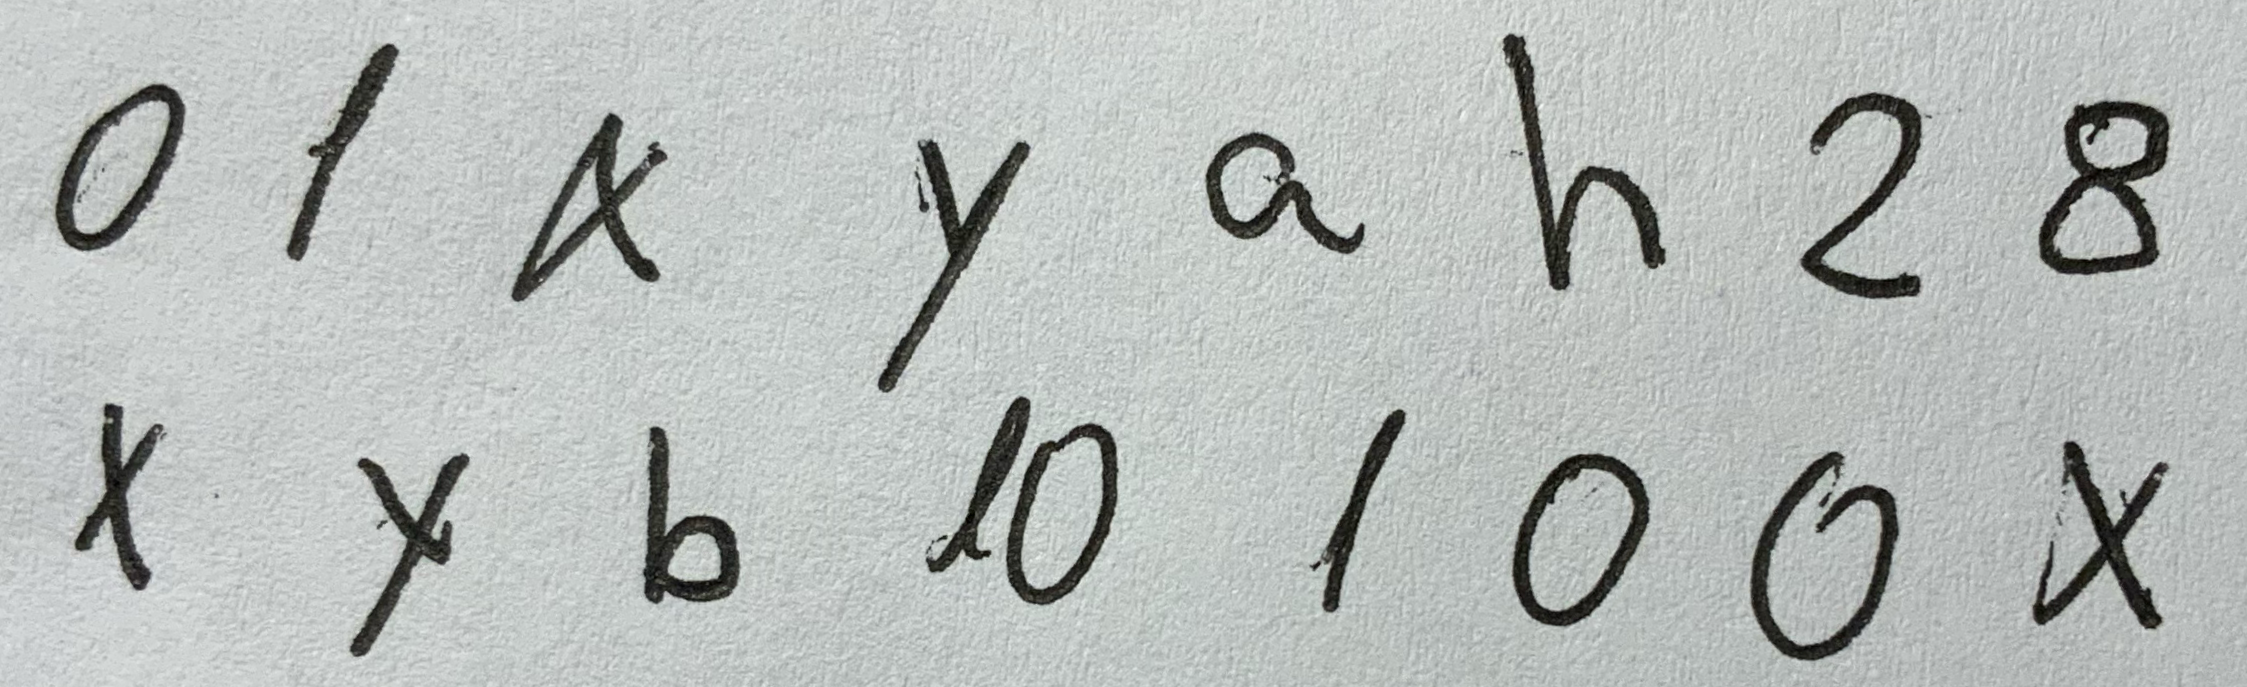 0 1 x y a h 2 8
x y b 10 1 0 0 x